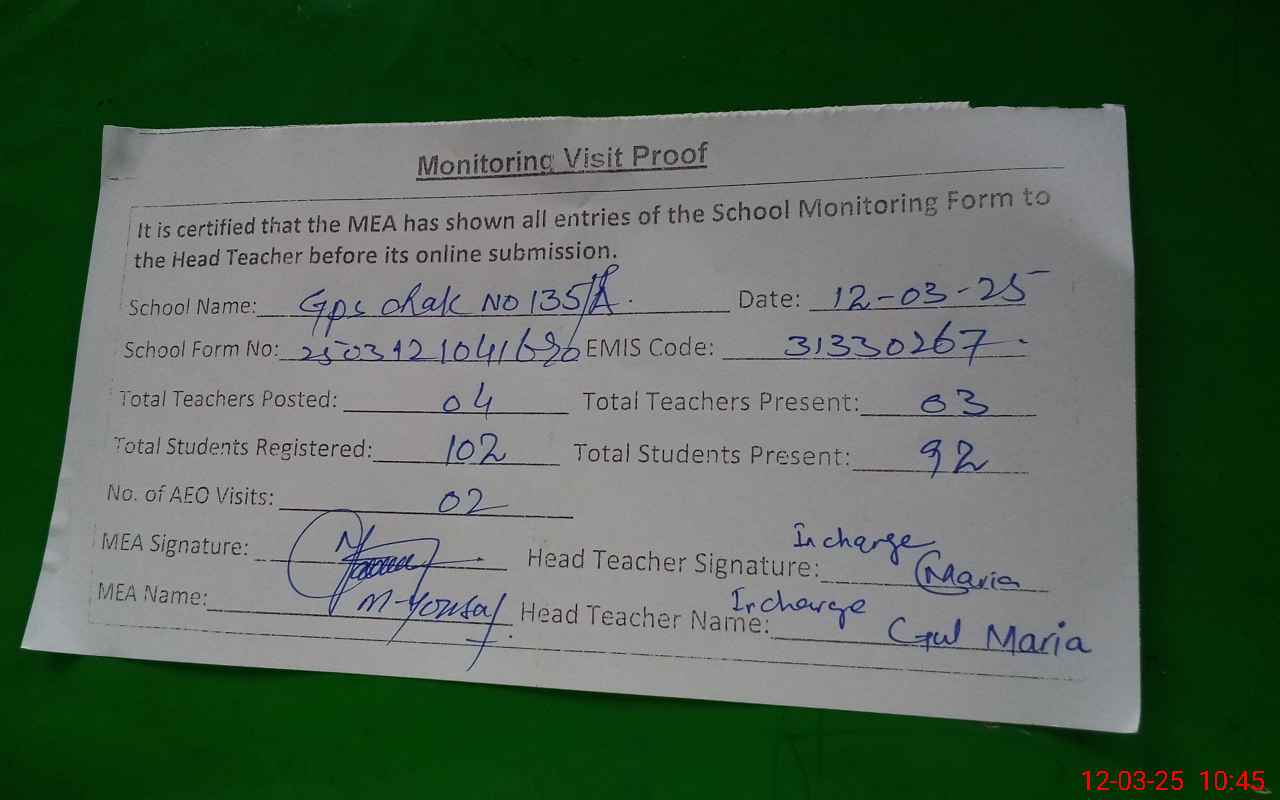 Monitoring Visit Proof
It is certified that the MEA has shown all entries of the School Monitoring Form to
the Head Teacher before its online submission.
School Name: Gps chak NO 135/A. Date: 12-03-25
School Form No: EMIS Code: 31330267.
Total Teachers Posted: 04 Total Teachers Present: 03
Total Students Registered: 102 Total Students Present: 92
No. of AEO Visits: 02
MEA Signature: Head Teacher Signature: Incharge Maria
MEA Name: M-Yousaf Head Teacher Name: Incharge Gul Maria
12-03-25 10:45